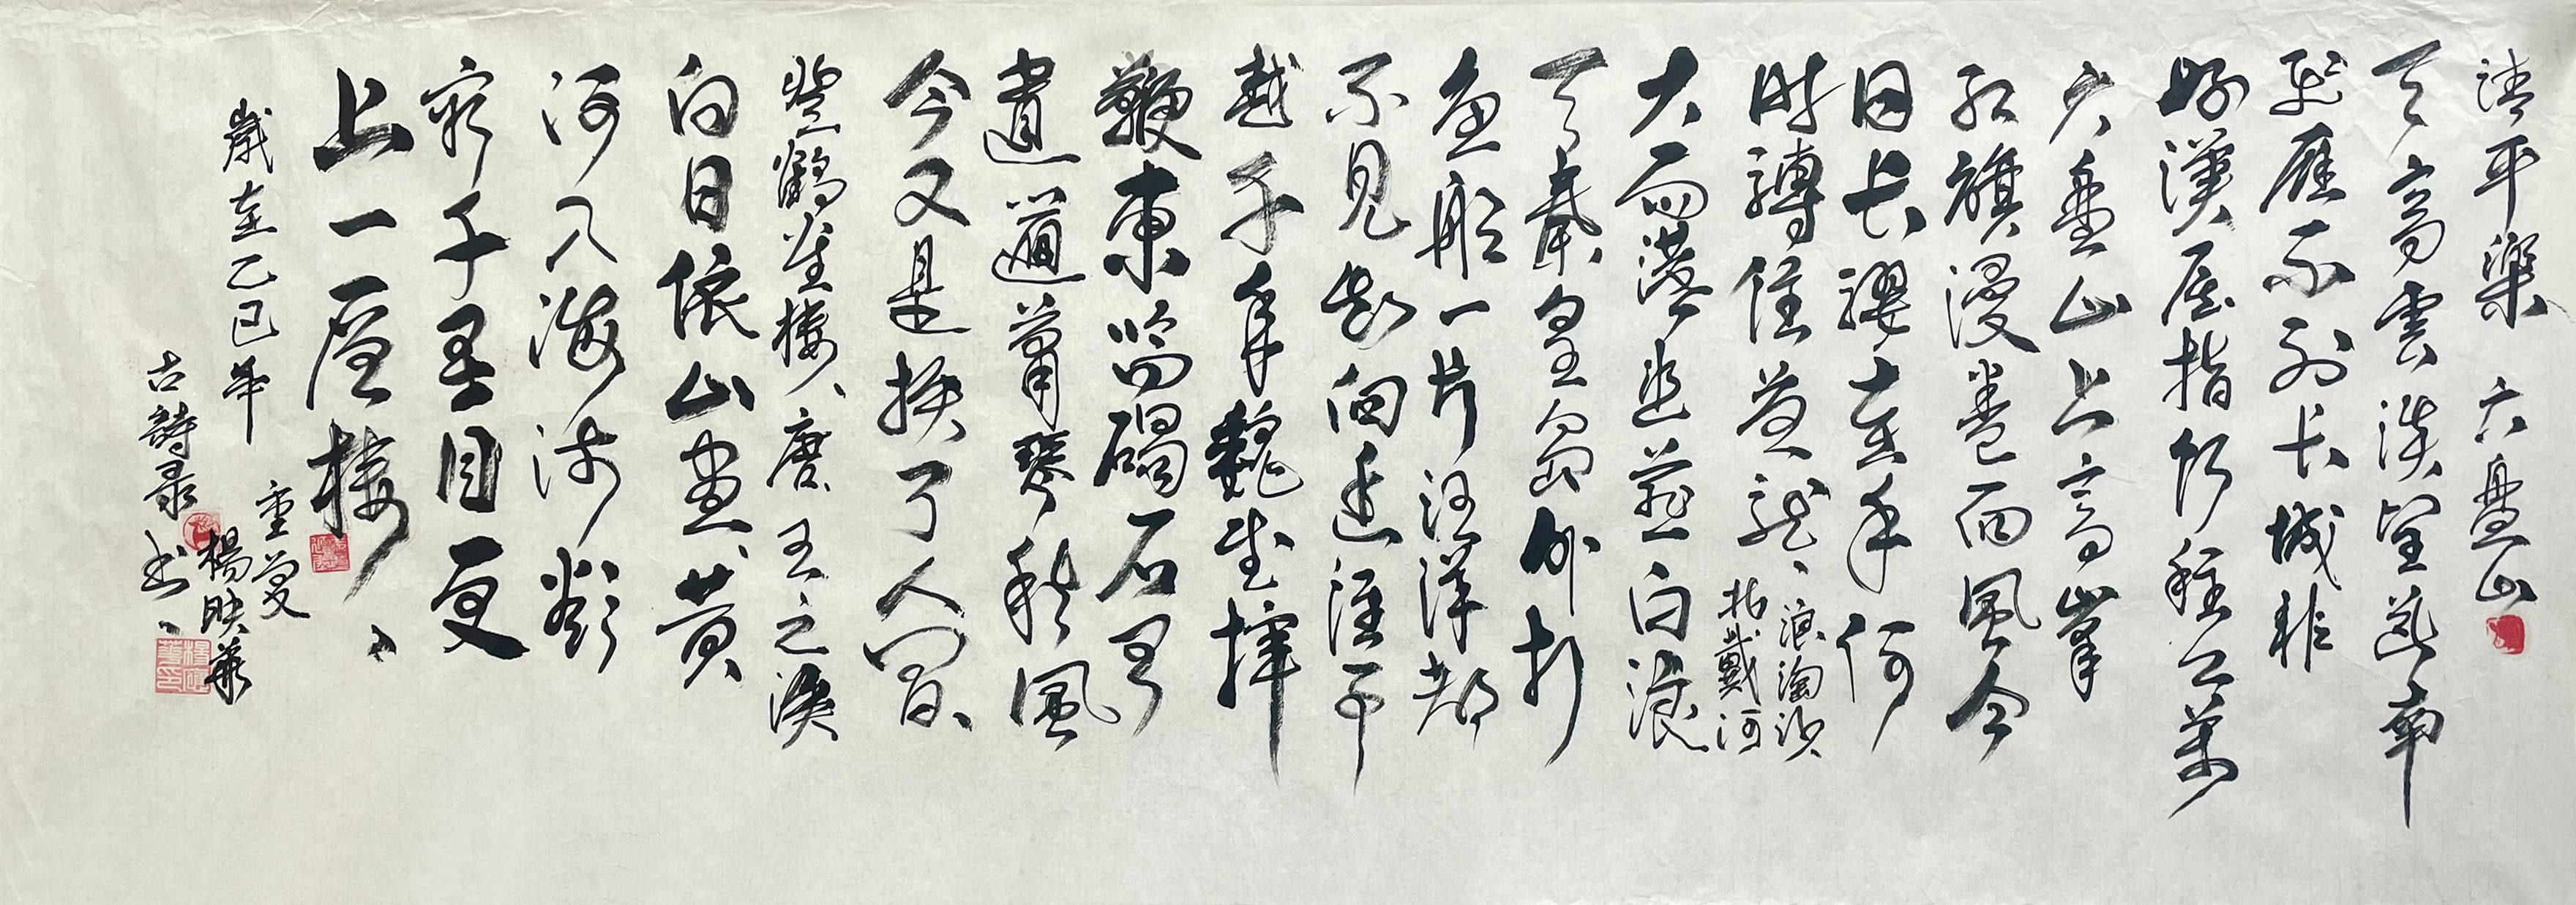 清平樂 六盤山
天高雲淡望斷南
飛雁不到长城非
好漢屈指行程二萬
六盘山上高峰
红旗漫卷西風今
日长纓在手何
时縛住蒼龍
浪淘沙
北戴河
大雨落幽燕白浪
天秦皇島外打
鱼船一片汪洋都
不見知向誰
越千年魏武揮
鞭東臨碣石有
遺篇蕭瑟秋風
今又是换了人間
登鶴雀樓 唐 王之渙
白日依山盡黄
河入海流欲
窮千里目更
上一層樓
歲在乙巳年
重慶
楊映華
古詩录
书